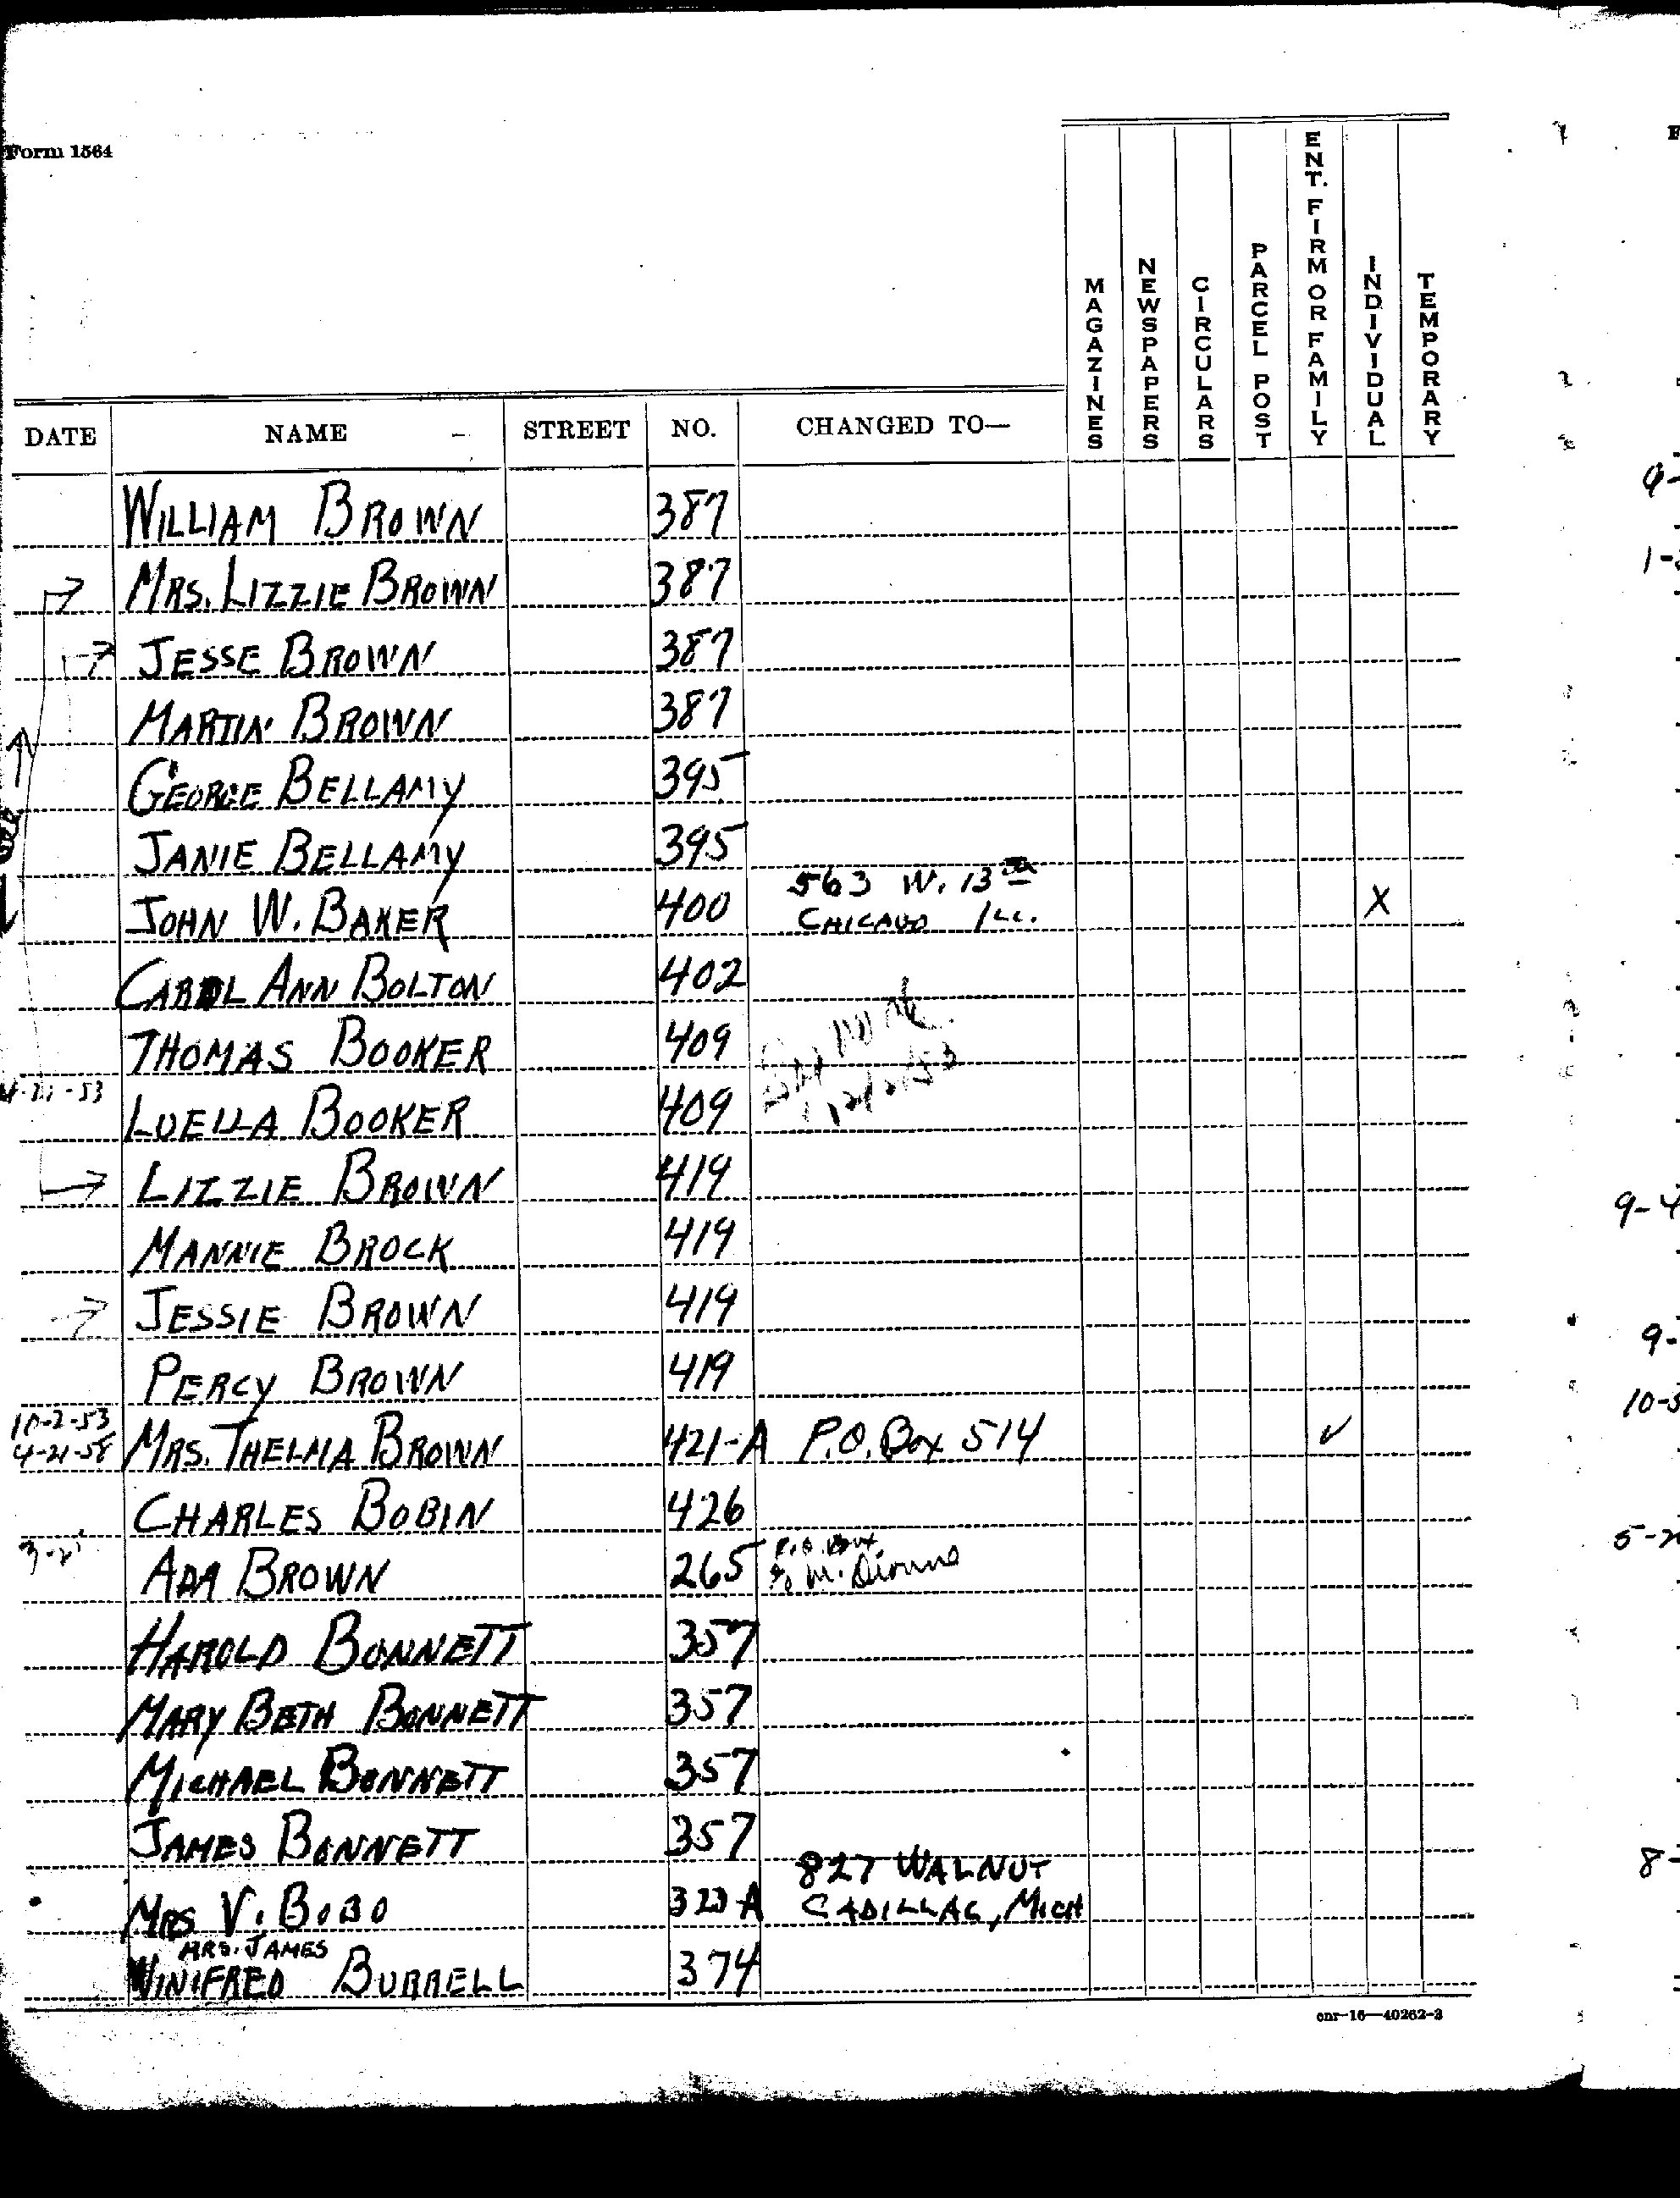 Form 1564
DATE NAME STREET NO. CHANGED TO— MAGAZINES NEWSPAPERS CIRCULARS PARCEL POST ENT. FIRM OR FAMILY INDIVIDUAL TEMPORARY
WILLIAM BROWN 387
MRS. LIZZIE BROWN 387
JESSE BROWN 387
MARTIN BROWN 387
GEORGE BELLAMY 395
JANIE BELLAMY 395
563 W. 13th
JOHN W. BAKER 400 CHICAGO ILL. X
CAROL ANN BOLTON 402
THOMAS BOOKER 409
LUELLA BOOKER 409
LIZZIE BROWN 419
MANNIE BROCK 419
JESSIE BROWN 419
PERCY BROWN 419
10-2-53
4-21-58 MRS. THELMA BROWN 421-A P.O. Box 514 ✓
CHARLES BOBIN 426
P.O. Box
ADA BROWN 265 % M. Dionne
HAROLD BONNETT 357
MARY BETH BONNETT 357
MICHAEL BONNETT 357
JAMES BONNETT 357
827 WALNUT
MRS V. BOBO A CADILLAC, MICH
MRS. JAMES
WINIFRED BURRELL 374
cnr-16—40262-3